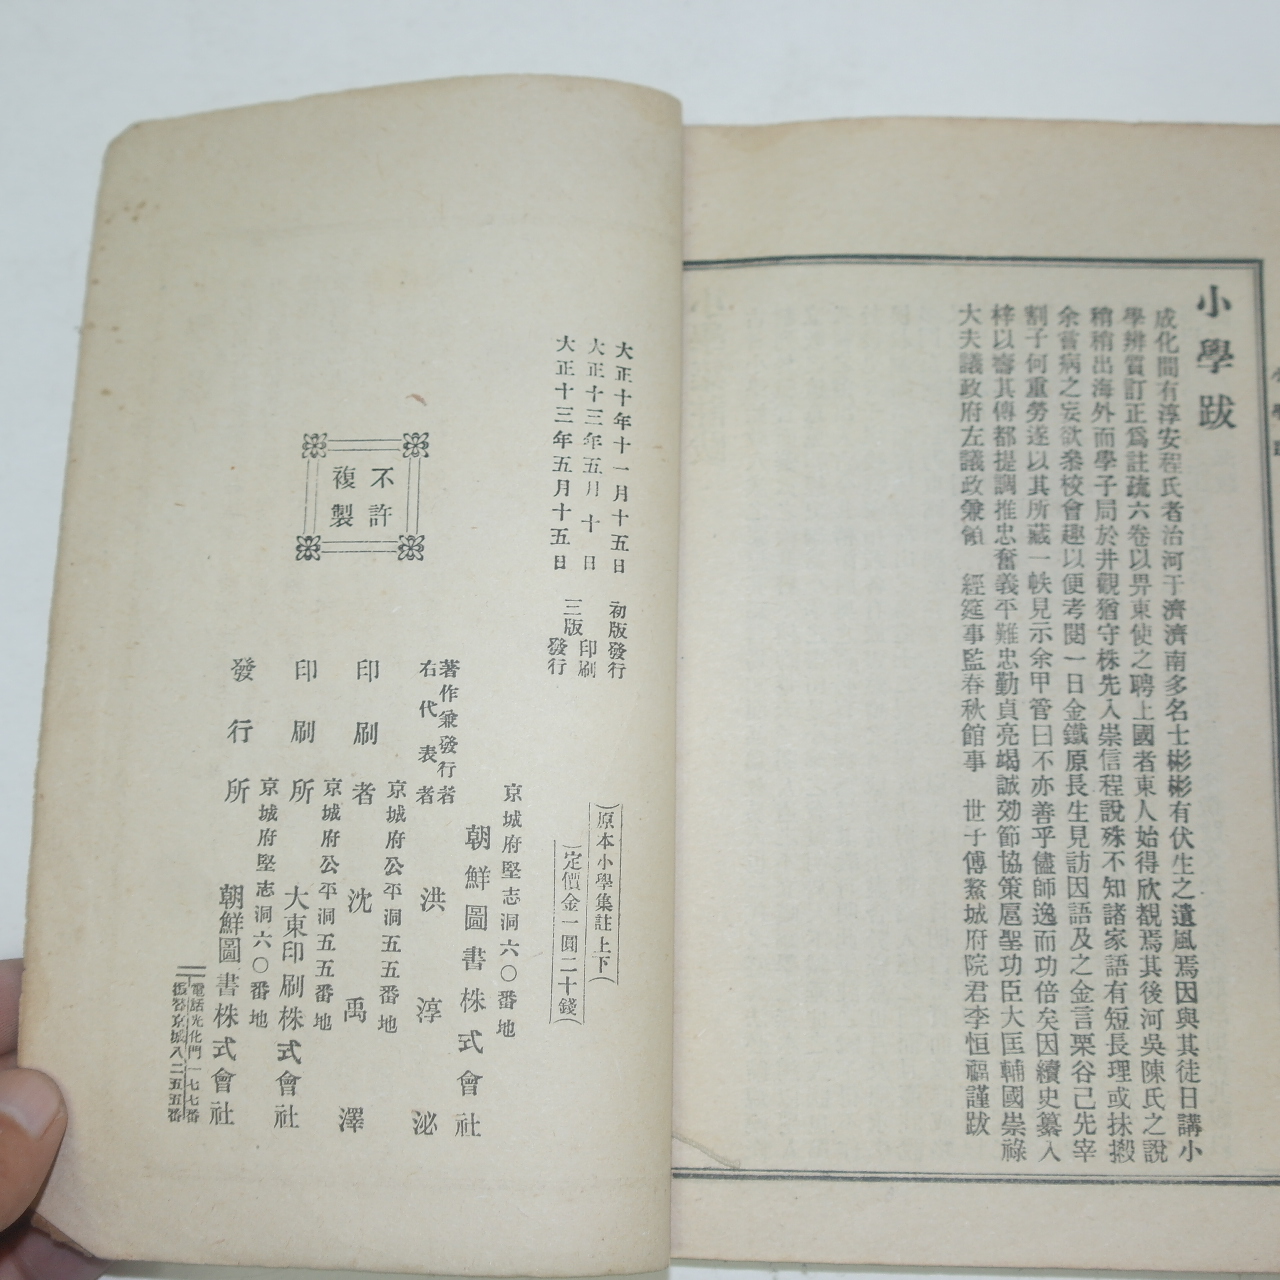 小學跋
成化間有淳安程氏者治河于濟濟南多名士彬彬有伏生之遺風焉因與其徒日講小
學辨質訂正爲註疏六卷以畀東使之聘上國者東人始得欣覩焉其後河吳陳氏之說
稍稍出海外而學子局於井觀猶守株先入崇信程說殊不知諸家語有短長理或抹搬
余嘗病之妄欲叅校會趣以便考閱一日金鐵原長生見訪因語及之金言栗谷己先宰
割子何重勞遂以其所藏一帙見示余甲管曰不亦善乎儘師逸而功倍矣因續史纂入
梓以審其傳都提調推忠奮義平難忠勤貞亮竭誠効節協策扈聖功臣大匡輔國崇祿
大夫議政府左議政兼領 經筵事監春秋館事 世子傅鰲城府院君李恒福謹跋
大正十年十一月十五日 初版發行
大正十三年五月十日 三版印刷
大正十三年五月十五日 發行
(原本小學集註上下)
(定價金一圓二十錢)
不許
複製
京城府堅志洞六〇番地
著作兼發行者 朝鮮圖書株式會社
右代表者 洪淳泌
京城府公平洞五五番地
印刷者 沈禹澤
京城府公平洞五五番地
印刷所 大東印刷株式會社
京城府堅志洞六〇番地
發行所 朝鮮圖書株式會社
電話光化門一七七番
振替京城八二五五番